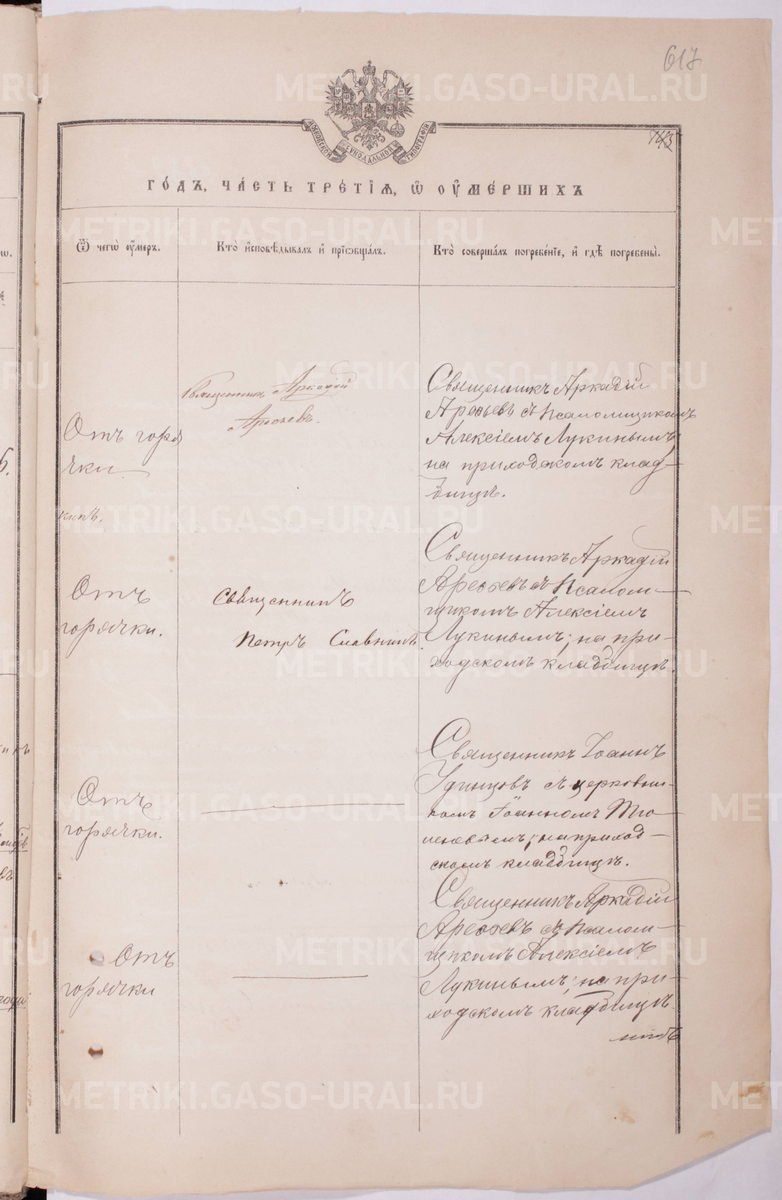 617
145
МОСКОВСКОЙ СѴНОДАЛЬНОЙ ТИПОГРАФІИ
го́дъ, ча́сть тре́тїѧ, ѡ҆ ᲂу҆ме́ршихъ
Ѿ чегѡ̀ ᲂу҆́меръ.
Кто̀ и҆сповѣ́дывалъ и҆ прїѡбща́лъ.
Кто̀ соверша́лъ погребе́нїе, и҆ гдѣ̀ погребены̀.
Отъ горя
чки
Священникъ Аркадій
Арефьевъ.
Священникъ Аркадій
Арефьевъ съ Псаломщикомъ
Алексіемъ Лукинымъ
на приходскомъ клад-
бищѣ.
Отъ
горячки.
Священникъ
Петръ Славнинъ.
Священникъ Аркадій
Арефьевъ съ Псалом-
щикомъ Алексіемъ
Лукинымъ; на при-
ходскомъ кладбищѣ.
Отъ
горячки.
Священникъ Іоаннъ
Удинцовъ съ церковни-
комъ Іоанномъ
на приход-
скомъ кладбищѣ.
Отъ
горячки
Священникъ Аркадій
Арефьевъ съ Псалом-
щикомъ Алексіемъ
Лукинымъ; на при-
ходскомъ кладбищѣ
METRIKI.GASO-URAL.RU